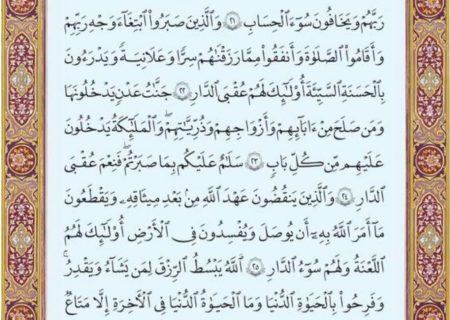 رَبَّهُمْ وَيَخَافُونَ سُوٓءَ ٱلْحِسَابِ ٢١ وَٱلَّذِينَ صَبَرُوا۟ ٱبْتِغَآءَ وَجْهِ رَبِّهِمْ
وَأَقَامُوا۟ ٱلصَّلَوٰةَ وَأَنفَقُوا۟ مِمَّا رَزَقْنَٰهُمْ سِرًّا وَعَلَانِيَةً وَيَدْرَءُونَ
بِٱلْحَسَنَةِ ٱلسَّيِّئَةَ أُو۟لَٰٓئِكَ لَهُمْ عُقْبَى ٱلدَّارِ ٢٢ جَنَّٰتُ عَدْنٍ يَدْخُلُونَهَا
وَمَن صَلَحَ مِنْ ءَابَآئِهِمْ وَأَزْوَٰجِهِمْ وَذُرِّيَّٰتِهِمْ ۖ وَٱلْمَلَٰٓئِكَةُ يَدْخُلُونَ
عَلَيْهِم مِّن كُلِّ بَابٍ ٢٣ سَلَٰمٌ عَلَيْكُم بِمَا صَبَرْتُمْ ۚ فَنِعْمَ عُقْبَى
ٱلدَّارِ ٢٤ وَٱلَّذِينَ يَنقُضُونَ عَهْدَ ٱللَّهِ مِنۢ بَعْدِ مِيثَٰقِهِۦ وَيَقْطَعُونَ
مَآ أَمَرَ ٱللَّهُ بِهِۦٓ أَن يُوصَلَ وَيُفْسِدُونَ فِى ٱلْأَرْضِ ۙ أُو۟لَٰٓئِكَ لَهُمُ
ٱللَّعْنَةُ وَلَهُمْ سُوٓءُ ٱلدَّارِ ٢٥ ٱللَّهُ يَبْسُطُ ٱلرِّزْقَ لِمَن يَشَآءُ وَيَقْدِرُ ۚ
وَفَرِحُوا۟ بِٱلْحَيَوٰةِ ٱلدُّنْيَا وَمَا ٱلْحَيَوٰةُ ٱلدُّنْيَا فِى ٱلْءَاخِرَةِ إِلَّا مَتَٰعٌ